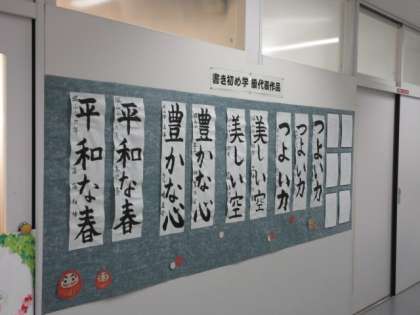 書き初め学級代表作品
つよい力
つよい力
つよい力
美しい空
美しい空
豊かな心
豊かな心
平和な春
平和な春